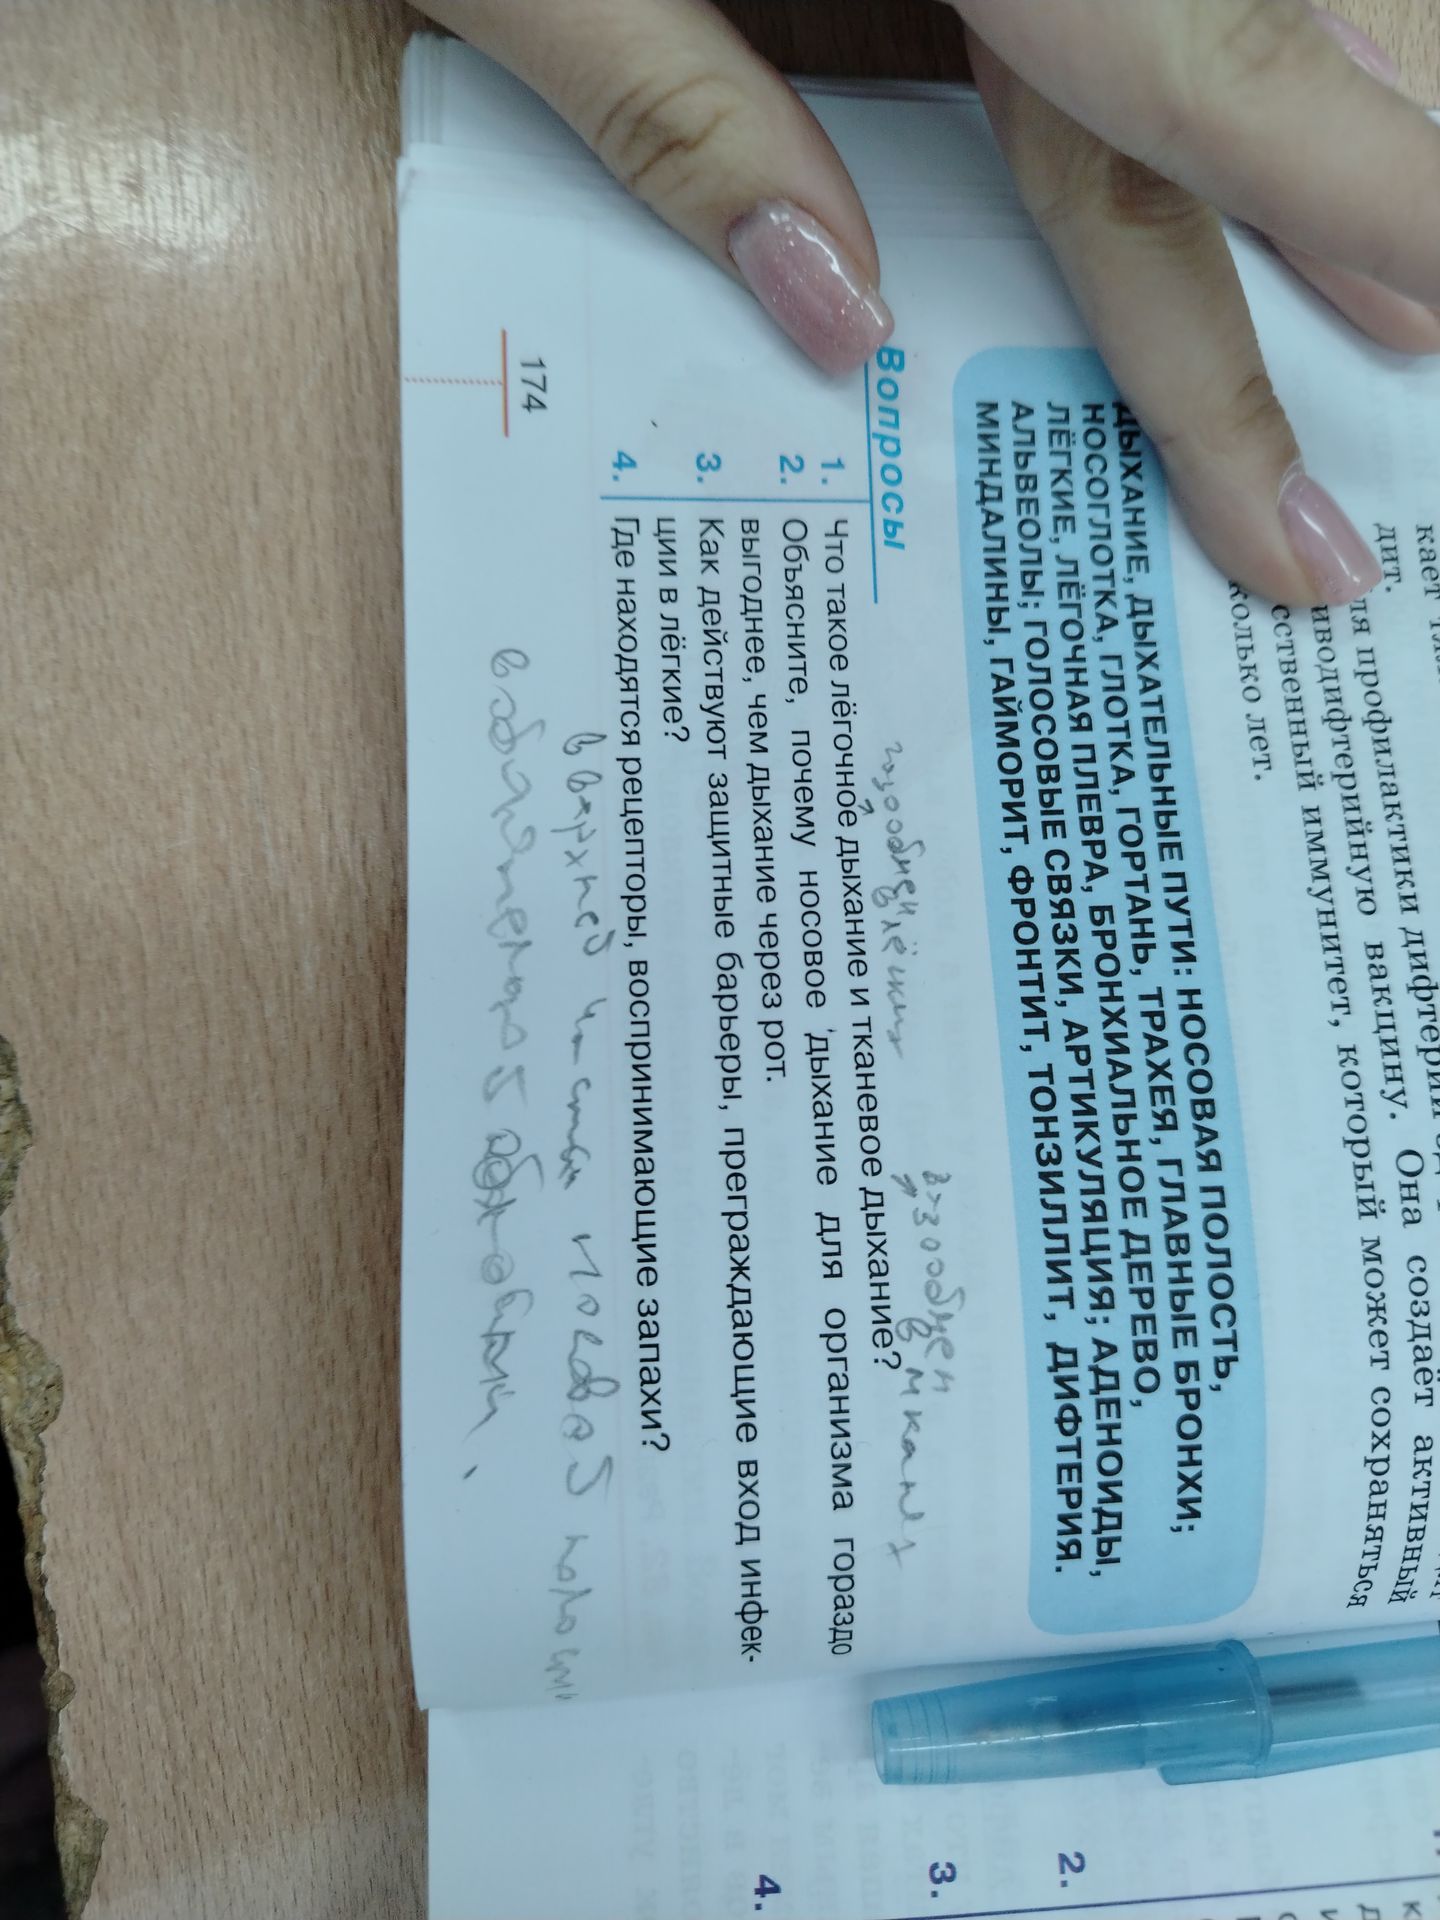 кает
дит.
ля профилактики дифтерии
иводифтерийную вакцину. Она создаёт активный
сственный иммунитет, который может сохраняться
колько лет.
ДЫХАНИЕ, ДЫХАТЕЛЬНЫЕ ПУТИ: НОСОВАЯ ПОЛОСТЬ,
НОСОГЛОТКА, ГЛОТКА, ГОРТАНЬ, ТРАХЕЯ, ГЛАВНЫЕ БРОНХИ;
ЛЁГКИЕ, ЛЁГОЧНАЯ ПЛЕВРА, БРОНХИАЛЬНОЕ ДЕРЕВО,
АЛЬВЕОЛЫ; ГОЛОСОВЫЕ СВЯЗКИ, АРТИКУЛЯЦИЯ; АДЕНОИДЫ,
МИНДАЛИНЫ, ГАЙМОРИТ, ФРОНТИТ, ТОНЗИЛЛИТ, ДИФТЕРИЯ.
Вопросы
газообмен в лёгких газообмен в тканях
1. Что такое лёгочное дыхание и тканевое дыхание?
2. Объясните, почему носовое дыхание для организма гораздо
выгоднее, чем дыхание через рот.
3. Как действуют защитные барьеры, преграждающие вход инфек-
ции в лёгкие?
4. Где находятся рецепторы, воспринимающие запахи?
в верхней части носовой полости
в обонятельной
174
2.
3.
4.